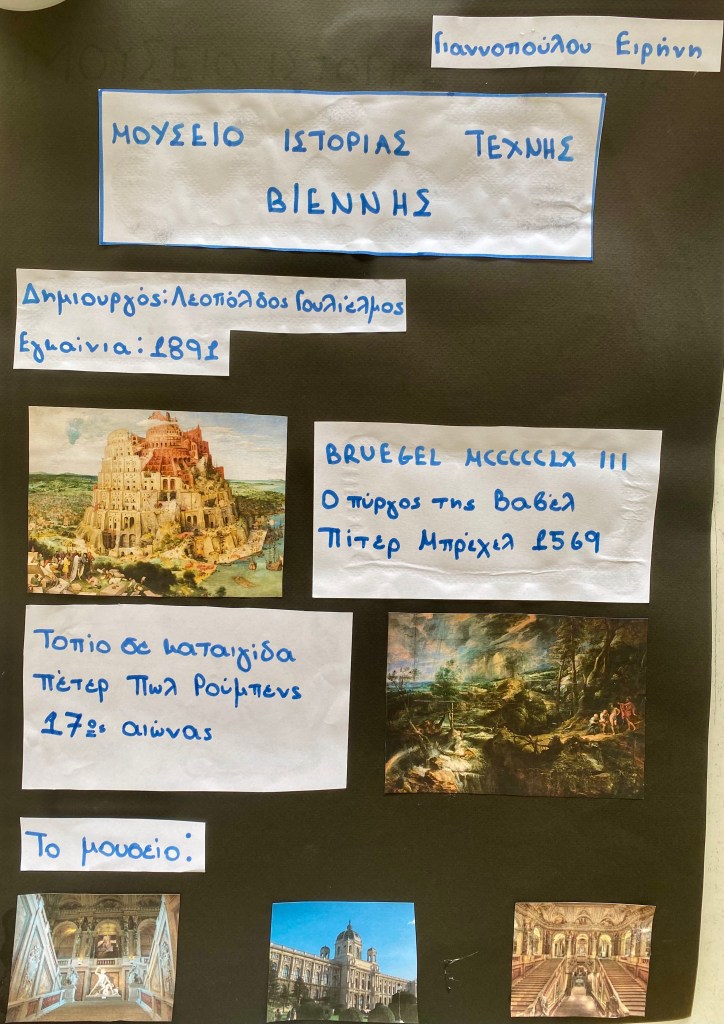 Γιαννοπούλου Ειρήνη
ΜΟΥΣΕΙΟ ΙΣΤΟΡΙΑΣ ΤΕΧΝΗΣ
ΒΙΕΝΝΗΣ
Δημιουργός: Λεοπόλδος Γουλιέλμος
Εγκαίνια: 1891
BRUEGEL MCCCCCLX III
Ο πύργος της Βαβέλ
Πίτερ Μπρέχελ 1569
Τοπίο σε καταιγίδα
Πέτερ Πωλ Ρούμπενς
17ος αιώνας
Το μουσείο: